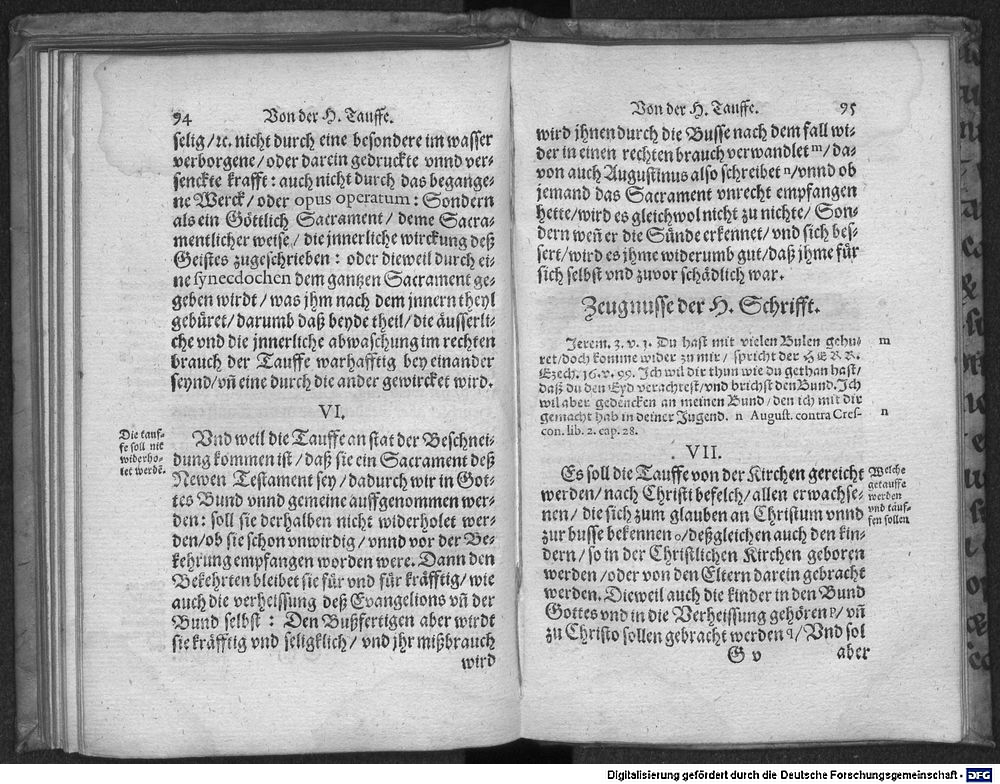 94 Von der H. Tauffe.
selig/ꝛc. nicht durch eine besondere im wasser
verborgene/oder darein gedruckte vnnd ver-
senckte krafft: auch nicht durch das begange-
ne Werck/oder opus operatum: Sondern
als ein Göttlich Sacrament/deme Sacra-
mentlicher weise/die jnnerliche wirckung deß
Geistes zugeschrieben: oder dieweil durch ei-
ne synecdochen dem gantzen Sacrament ge-
geben wirdt/was jhm nach dem jnnern theyl
gebüret/darumb daß beyde theil/die äusserli-
che vnd die jnnerliche abwaschung im rechten
brauch der Tauffe warhafftig bey einander
seynd/vñ eine durch die ander gewircket wird.
VI.
Die tauf-
fe soll nit
widerho-
let werdē.
Vnd weil die Tauffe an stat der Beschnei-
dung kommen ist/daß sie ein Sacrament deß
Newen Testament sey/dadurch wir in Got-
tes Bund vnnd gemeine auffgenommen wer-
den: soll sie derhalben nicht widerholet wer-
den/ob sie schon vnwirdig/vnnd vor der Be-
kehrung empfangen worden were. Dann den
Bekehrten bleibet sie für vnd für kräfftig/wie
auch die verheissung deß Evangelions vñ der
Bund selbst: Den Bußfertigen aber wirdt
sie kräfftig vnd seligklich/vnd jhr mißbrauch
wird
Von der H. Tauffe. 95
wird jhnen durch die Busse nach dem fall wi-
der in einen rechten brauch verwandlet m/da-
von auch Augustinus also schreibet n/vnnd ob
jemand das Sacrament vnrecht empfangen
hette/wird es gleichwol nicht zu nichte/Son-
dern weñ er die Sünde erkennet/vnd sich bes-
sert/wird es jhme widerumb gut/daß jhme für
sich selbst vnd zuvor schädlich war.
Zeugnusse der H. Schrifft.
Jerem. 3. v. 1. Du hast mit vielen Bulen gehu- m
ret/doch komme wider zu mir/spricht der HERR.
Ezech. 16. v. 99. Ich wil dir thun wie du gethan hast/
daß du den Eyd verachtest/vnd brichst den Bund. Ich
wil aber gedencken an meinen Bund/den ich mit dir
gemacht hab in deiner Jugend. n August. contra Cres- n
con. lib. 2. cap. 28.
VII.
Es soll die Tauffe von der Kirchen gereicht
werden/nach Christi befelch/allen erwachse-
nen/die sich zum glauben an Christum vnnd
zur busse bekennen o/deßgleichen auch den kin-
dern/so in der Christlichen Kirchen geboren
werden/oder von den Eltern darein gebracht
werden. Dieweil auch die kinder in den Bund
Gottes vnd in die Verheissung gehören p/vñ
zu Christo sollen gebracht werden q/Vnd sol
Welche
getauffe
werden
vnd tauf-
fen sollen
G v aber
Digitalisierung gefördert durch die Deutsche Forschungsgemeinschaft - DFG